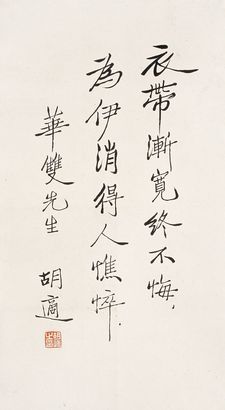 衣帶漸寬終不悔.
為伊消得人憔悴.
華雙先生
胡適